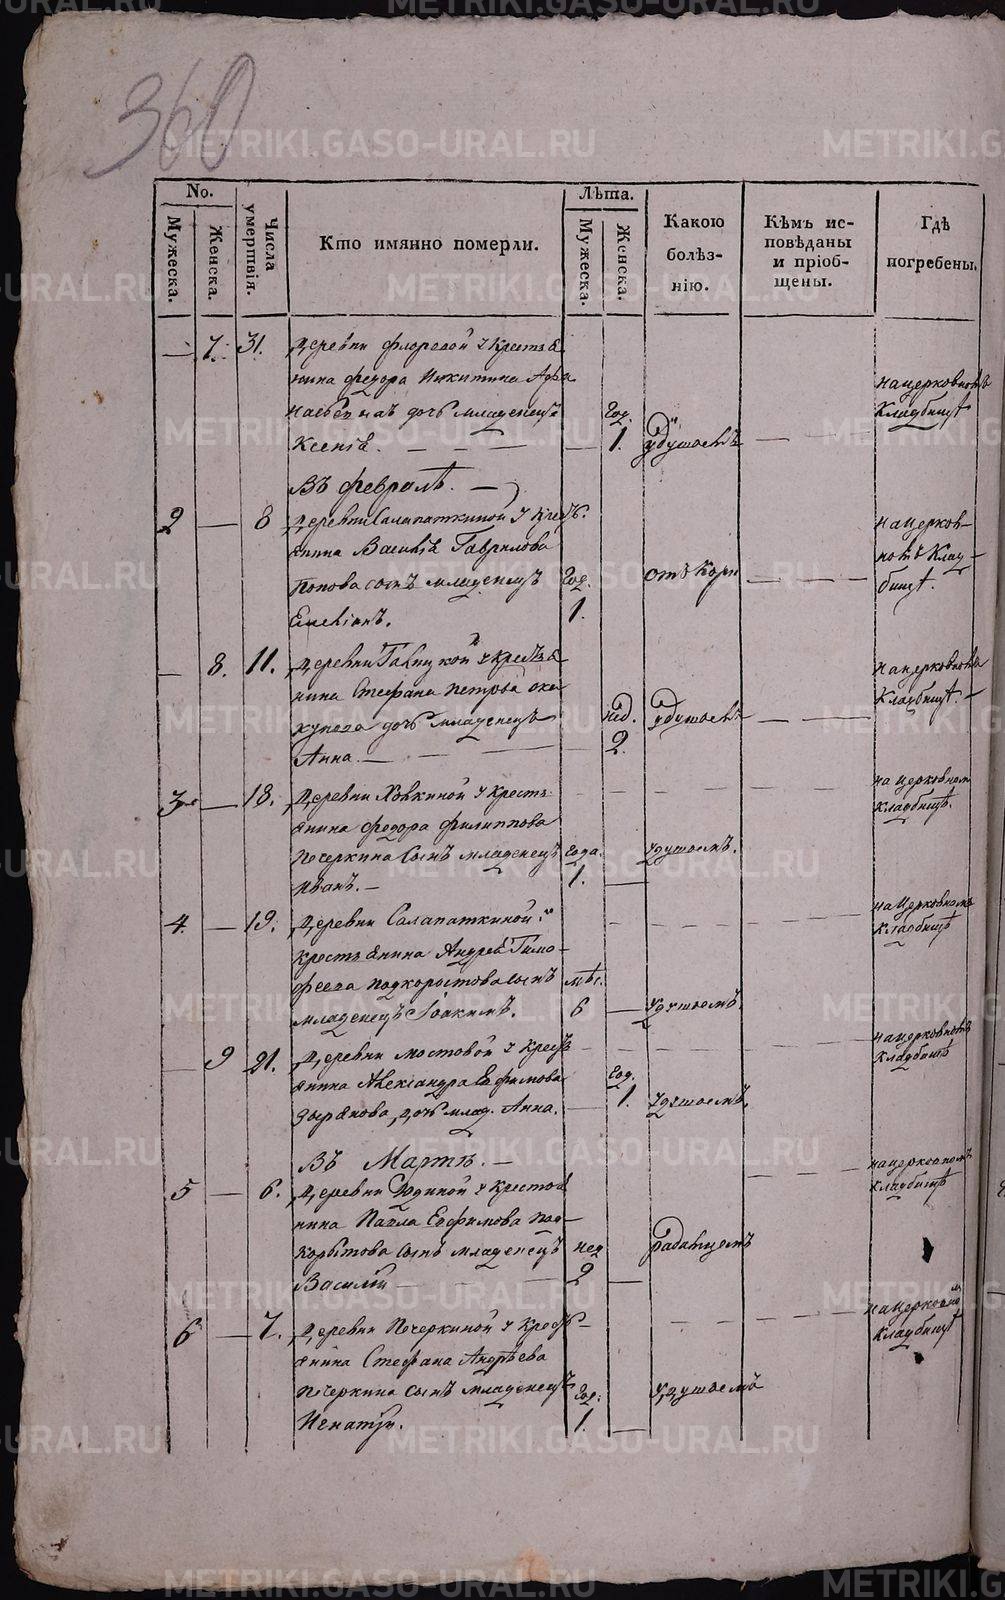 360
No.
Мужеска.
Женска.
Числа умертвія.
Кто имянно померли.
Лѣта.
Мужеска.
Женска.
Какою болѣз-
нію.
Кѣмъ ис-
повѣданы
и пріоб-
щены.
Гдѣ
погребены.
— 7. 31. Деревни Флоровой Крестья
нина Федора Никитина Афа
насьевыхъ дочь младенецъ
Ксенія. — Год. 1. удушьемъ — — на церковномъ кладбищѣ
Въ февралѣ. —
2 — 8 Деревни Салапаткиной Кресть.
янина Василія Гаврилова
Попова сынъ младенецъ Год. отъ Кори — — на церков-
номъ Клад-
бищѣ.
Емеліанъ. 1.
— 8. 11. Деревни Галицкой Крестья
нина Стефана Петрова
дочь младенецъ нед. удушьемъ — — на церковномъ
Кладбищѣ. —
Анна. — 2.
3 — 18. Деревни Ховкиной Кресть
янина Федора Филиппова
Печеркина Сынъ младенецъ года. удушьемъ. на церковном
кладбищѣ.
Иванъ. — 1. —
4. — 19. Деревни Салапаткиной
Крестьянина Андрея Тимо-
феева Подкорытова Сынъ мѣс.
младенецъ Іоакимъ. 6 — удушьемъ. на Церковномъ
кладбищѣ
9 21. Деревни Мостовой Кресть
янина Александра Ефимова Год.
Зырянова, дочь млад. Анна. — 1. удушьемъ. на церковномъ
Кладбищѣ
Въ Мартѣ. —
5 — 6. Деревни Крестья
нина Павла Евфимова Под-
Корытова Сынъ младенецъ нед Родимцемъ на церковномъ
Кладбищѣ
Василій — 2 —
6 — 7. Деревни Печеркиной Кресть-
янина Стефана Андрѣева
Печеркина Сынъ младенецъ Год. удушьемъ на церковном
Кладбищѣ
Игнатій. 1. —
METRIKI.GASO-URAL.RU